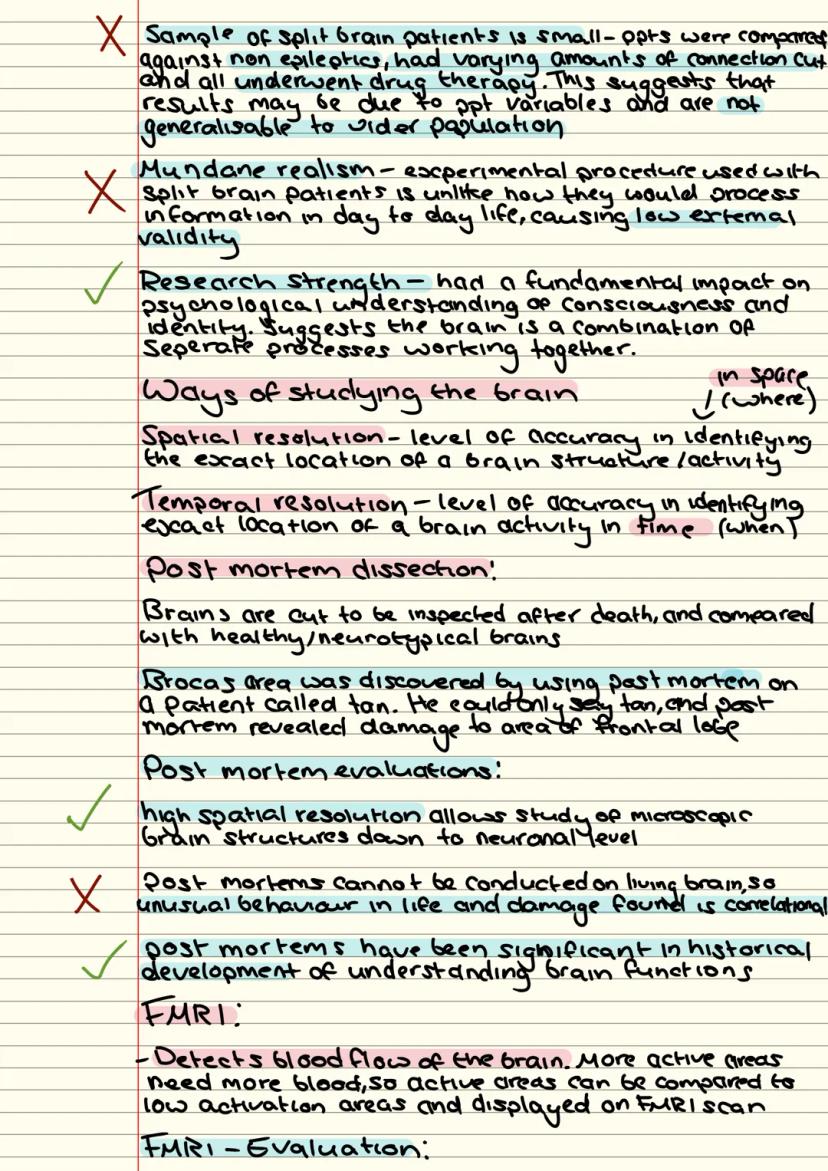 Sample of split brain patients is small - ppts were compared
against non epileptics, had varying amounts of connection cut
and all underwent drug therapy. This suggests that
results may be due to ppt variables and are not
generalisable to wider population
Mundane realism - excperimental procedure used with
split brain patients is unlike how they would process
information in day to day life, causing low external
validity
Research strength - had a fundamental impact on
psychological understanding of consciousness and
identity. Suggests the brain is a combination of
Seperate processes working together.
in space
Ways of studying the brain
(where)
Spatial resolution - level of accuracy in identifying
the exact location of a brain structure/activity
Temporal resolution - level of accuracy in identifying
excact location of a brain activity in time (when)
Post mortem dissection:
Brains are cut to be inspected after death, and compared
with healthy/neurotypical brains
Brocas area was discovered by using post mortem on
a patient called tan. He could only say tan, and post
mortem revealed damage to area of frontal lobe
Post mortem evaluations:
high spatial resolution allows study of microscopic
brain structures down to neuronal level
Post mortems cannot be conducted on living brain, so
unusual behaviour in life and damage found is correlational
post mortems have been significant in historical
development of understanding brain functions
FMRI:
- Detects blood flow of the brain. More active areas
need more blood, so active areas can be compared to
low activation areas and displayed on FMRI scan
FMRI - Evaluation: